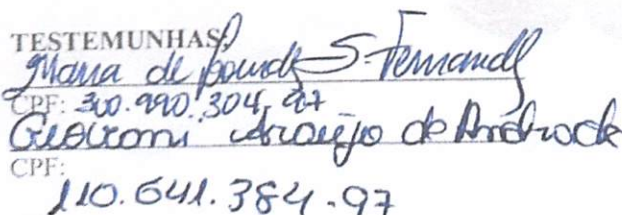 TESTEMUNHAS:
Maria de Lourdes S. Fernandes
CPF: 300.990.304.97
Geovani Araújo de Andrade
CPF:
110.641.384-97